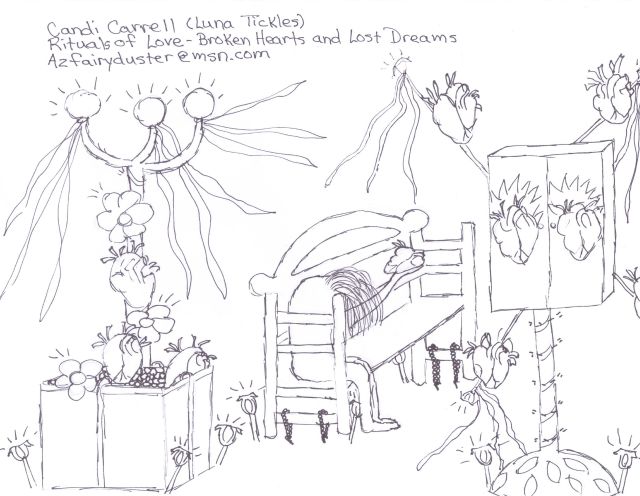 Candi Carrell (Luna Tickles)
Rituals of Love - Broken Hearts and Lost Dreams
Azfairyduster@msn.com